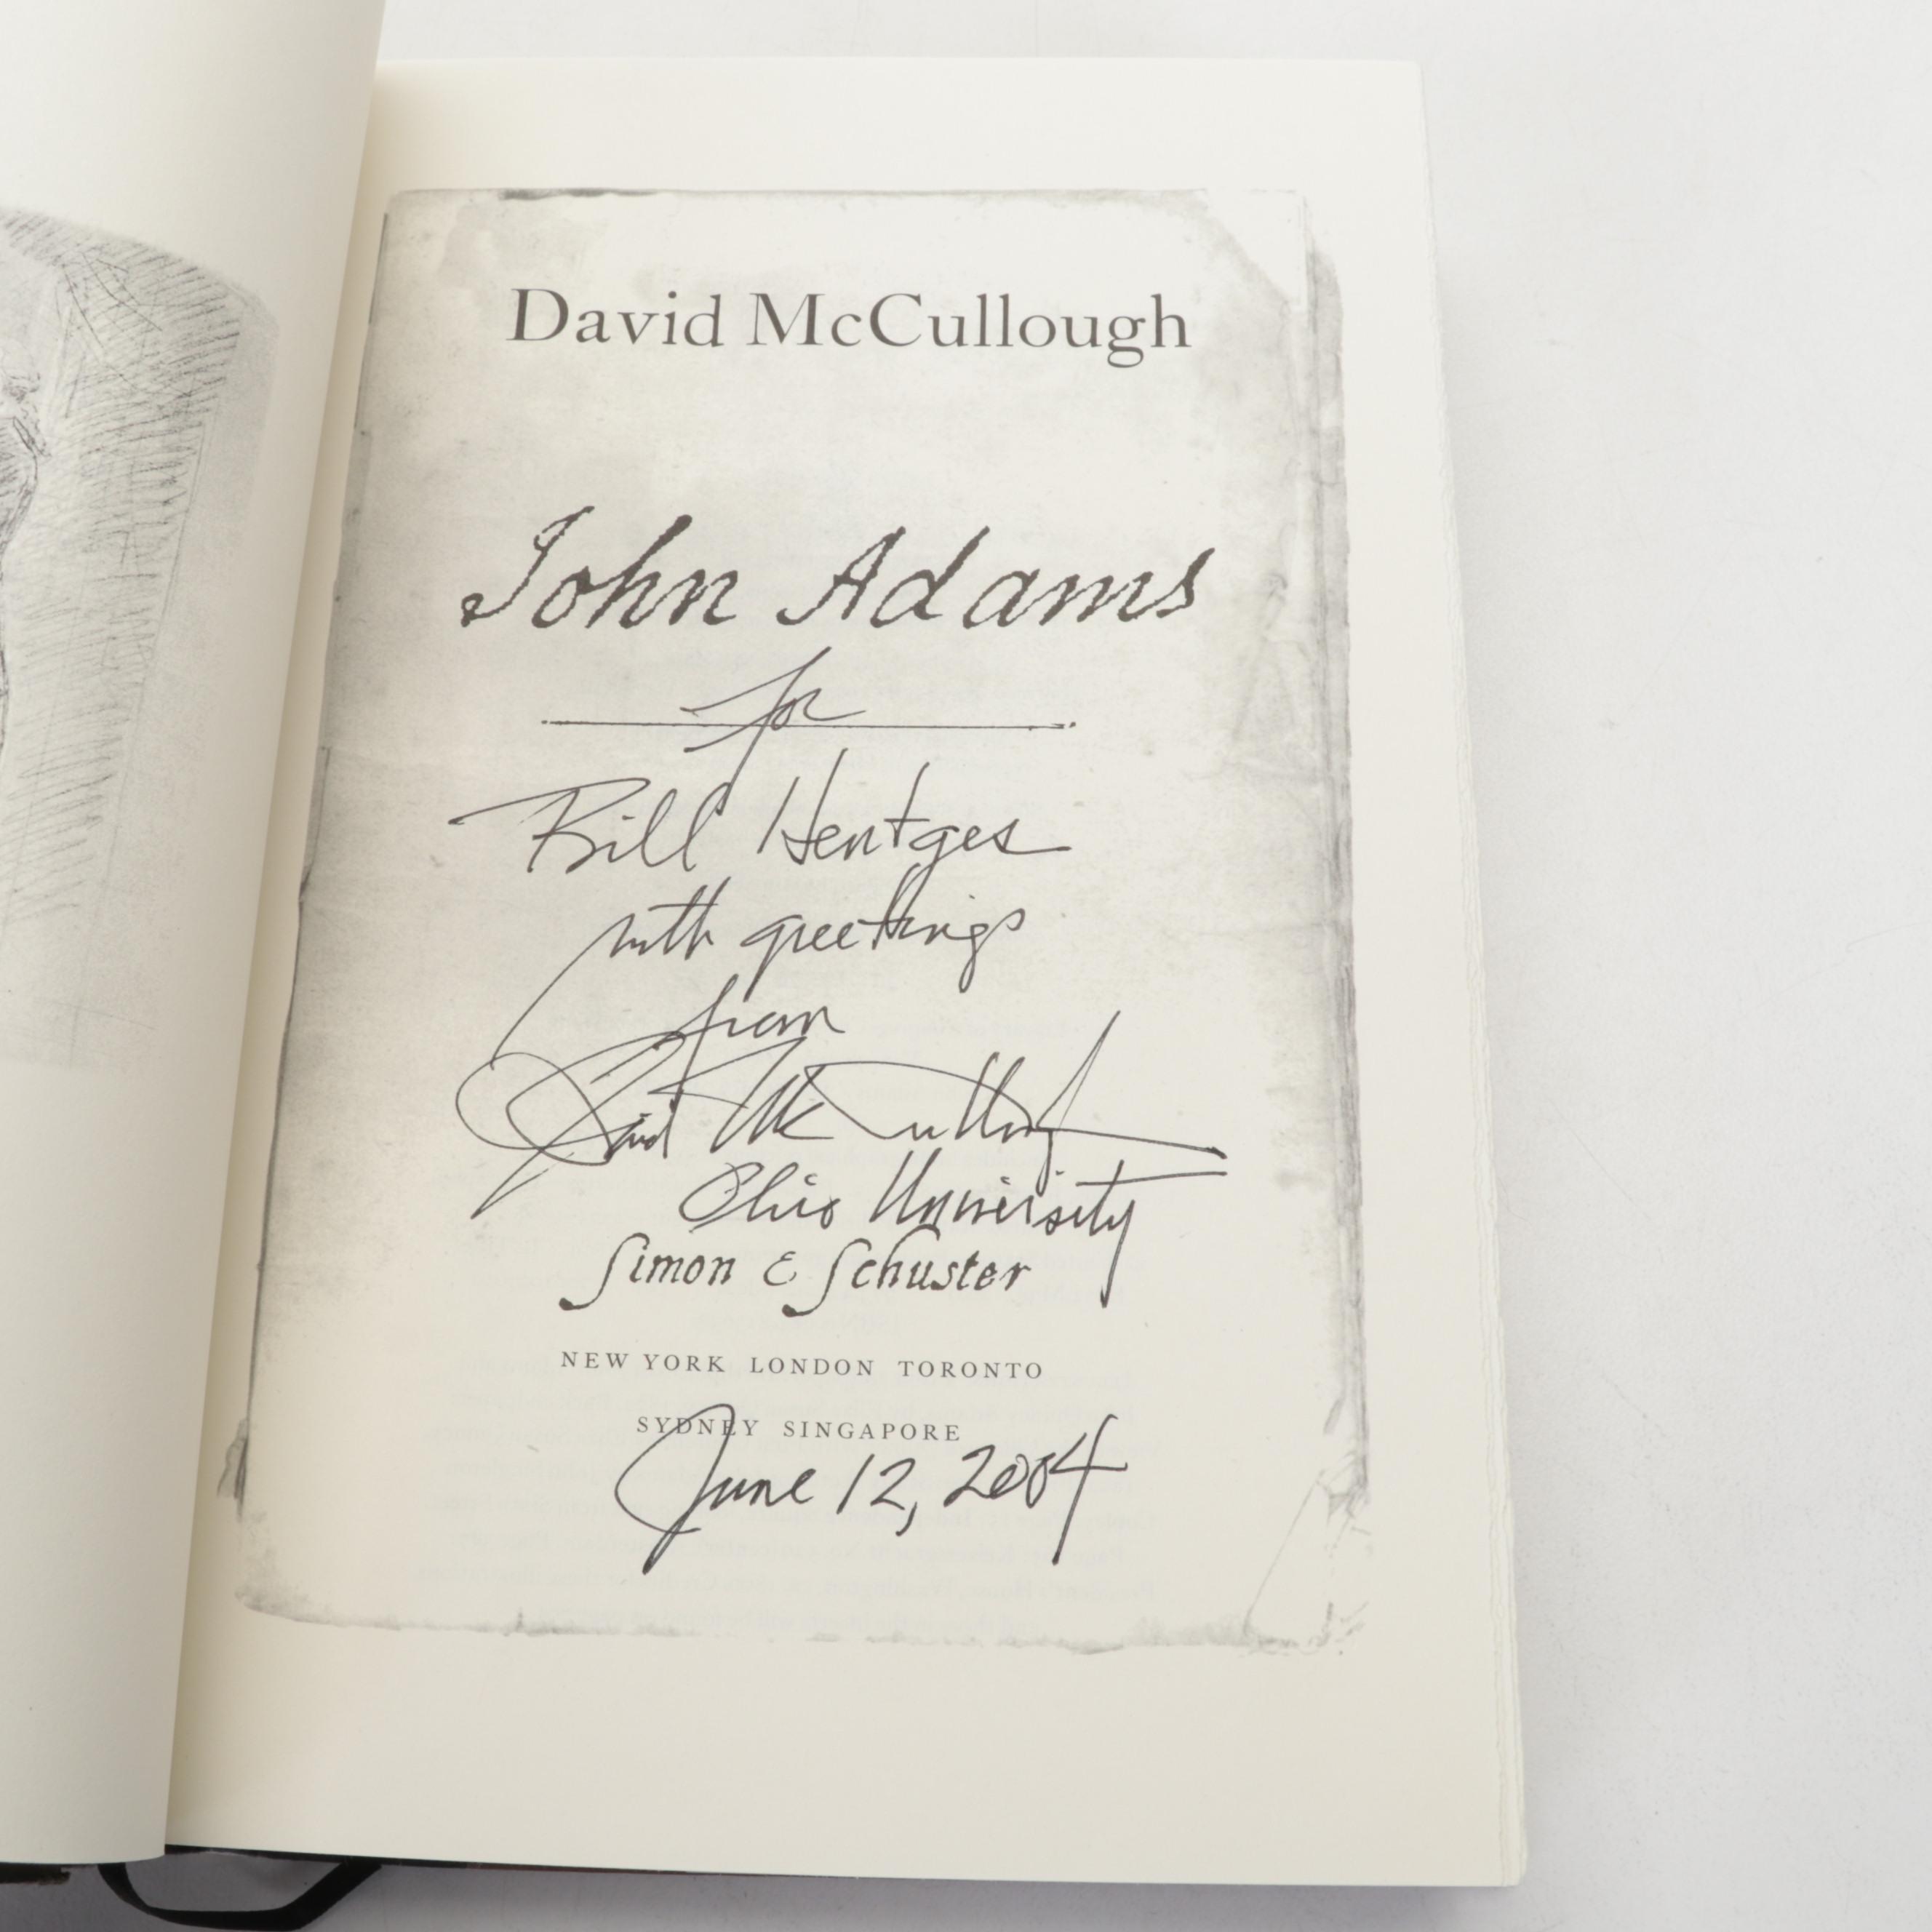 David McCullough
John Adams
for
Bill Hentges
with greetings
from
David McCullough
Ohio University
Simon & Schuster
NEW YORK LONDON TORONTO
SYDNEY SINGAPORE
June 12, 2004